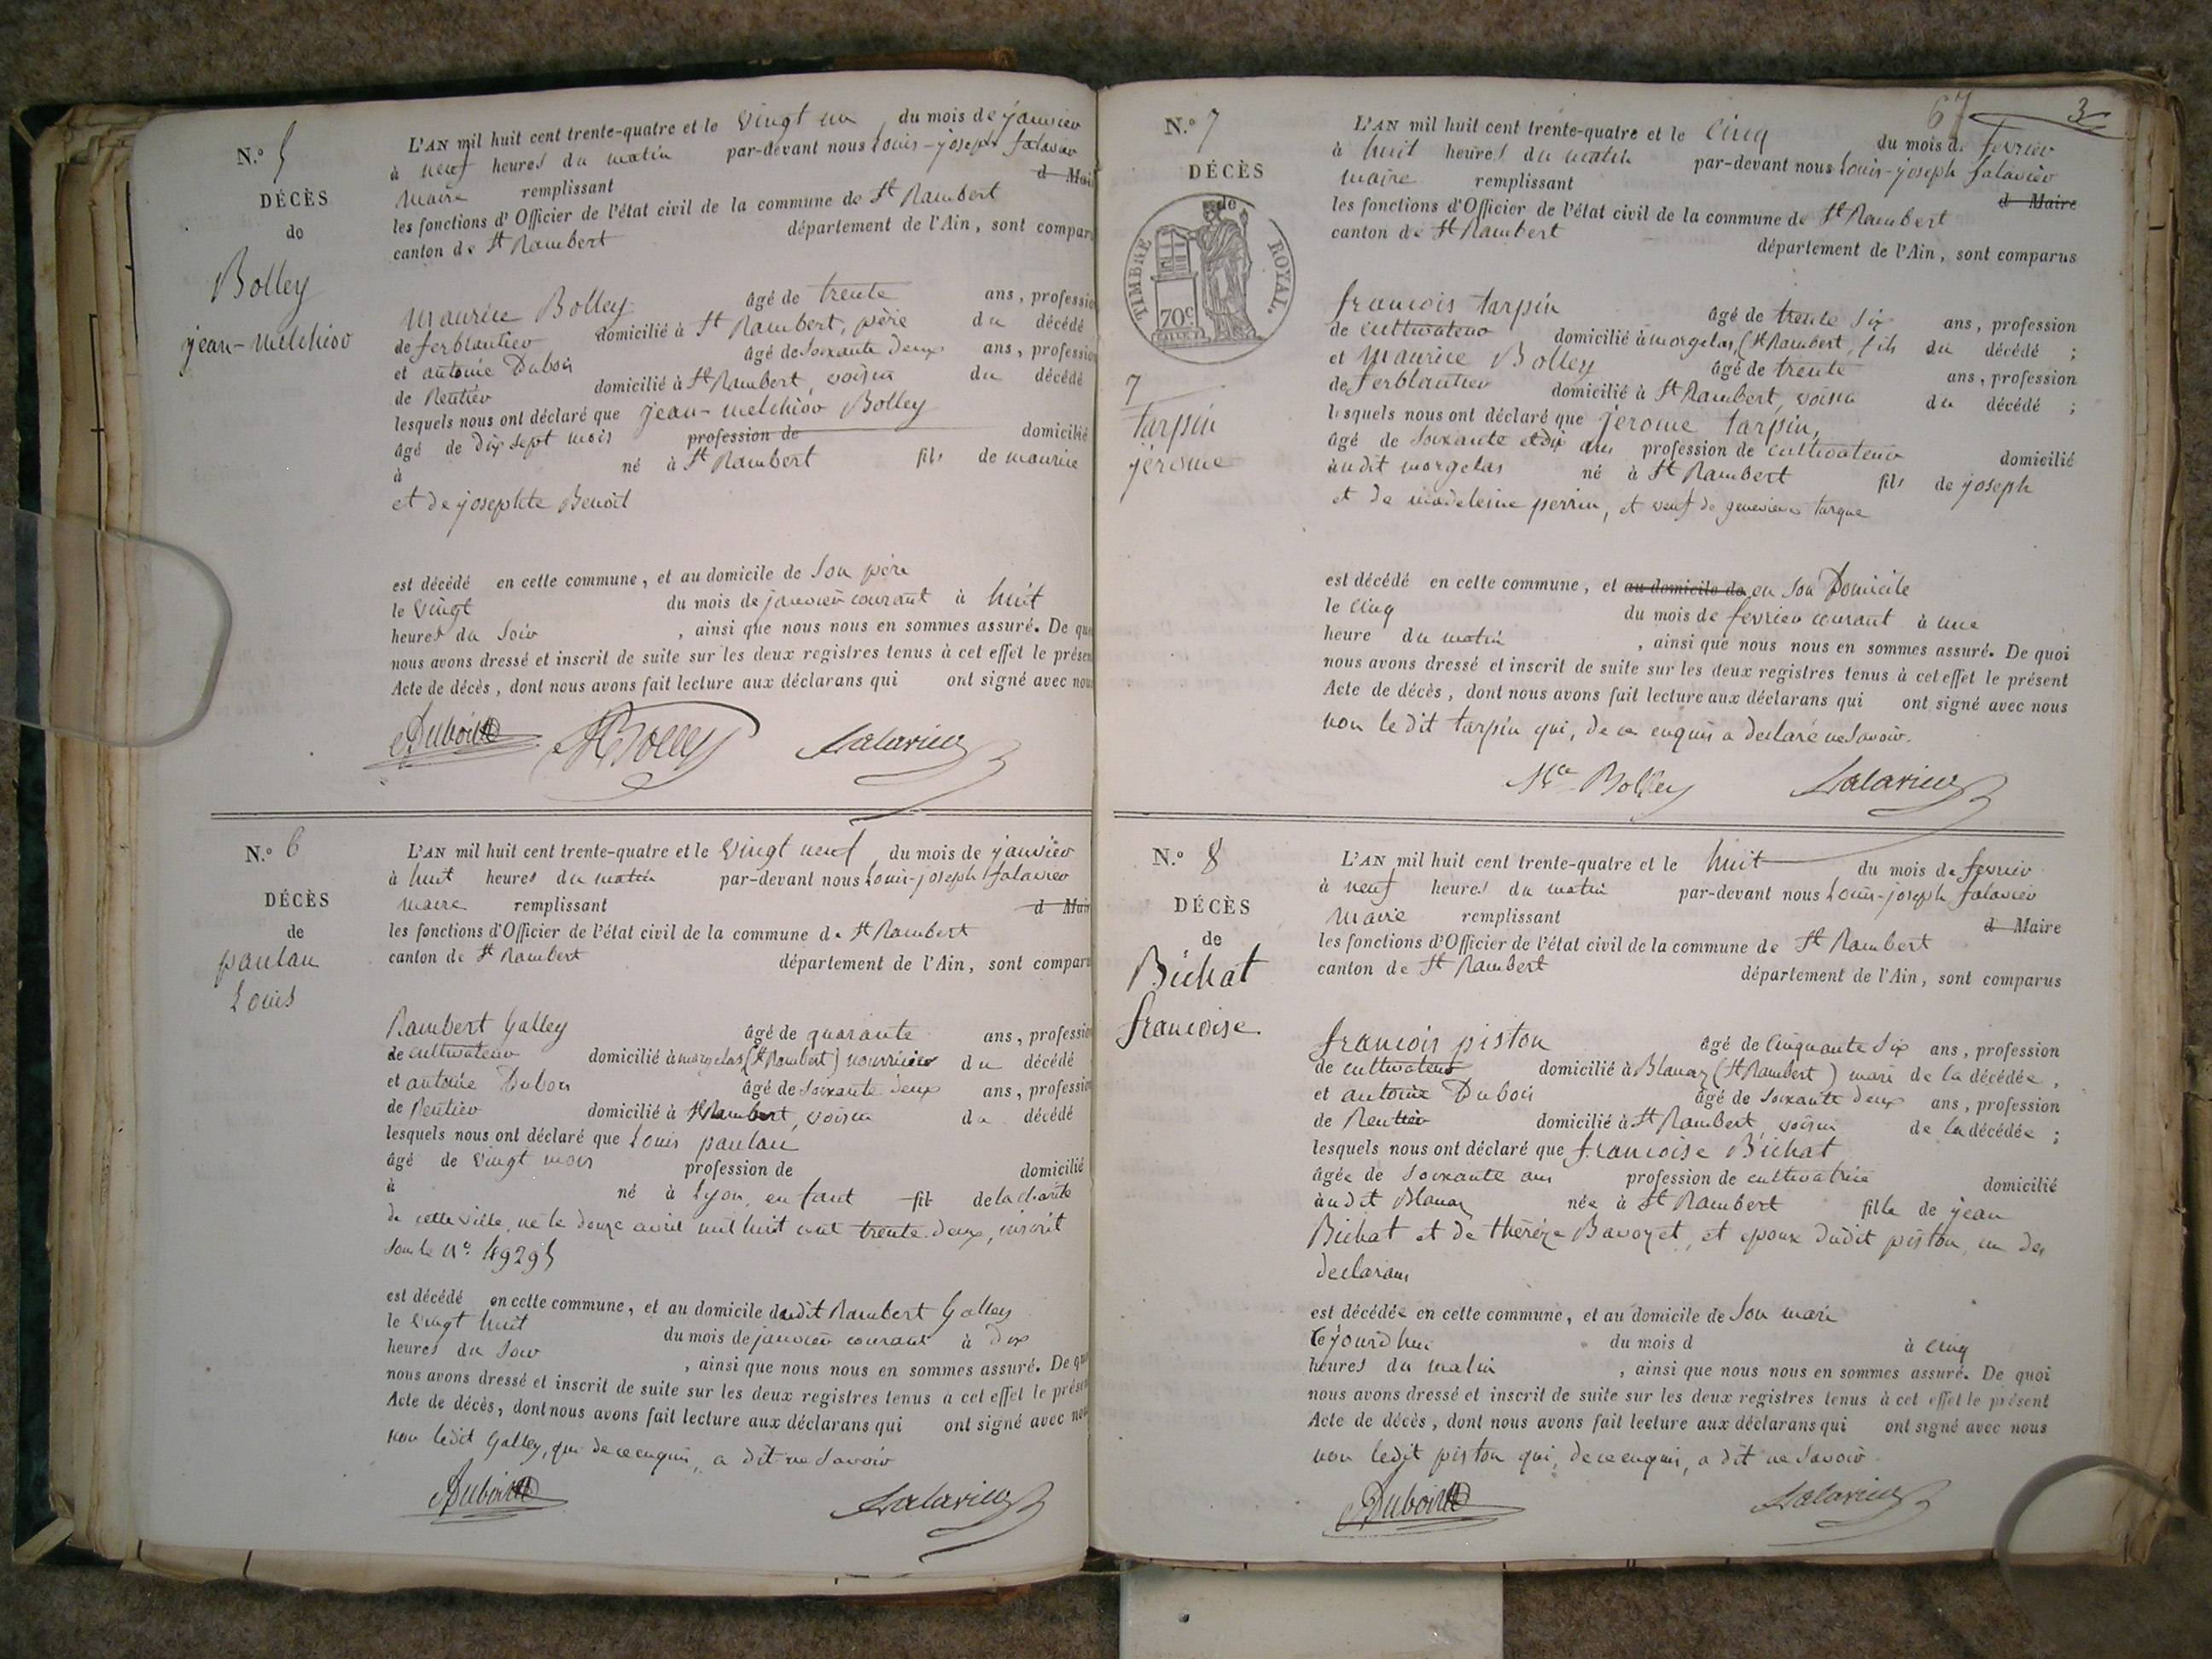 N.° 5
DÉCÈS
de
Bolley
jean-melchior
L'AN mil huit cent trente-quatre et le vingt un du mois de janvier
à neuf heures du matin par-devant nous Louis-joseph falavier
maire remplissant d Mai
les fonctions d'Officier de l'état civil de la commune de St Rambert
canton de St Rambert département de l'Ain, sont compar
Maurice Bolley âgé de trente ans, professio
de ferblantier domicilié à St Rambert, père du décédé
et antoine Dubois âgé de soixante deux ans, professio
de Rentier domicilié à St Rambert, voisin du décédé
lesquels nous ont déclaré que jean-melchior Bolley
âgé de dix sept mois profession de domicilié
à né à St Rambert fils de maurice
et de josephte Benoit
est décédé en cette commune, et au domicile de son père
le vingt du mois de janvier courant à huit
heures du soir , ainsi que nous nous en sommes assuré. De quo
nous avons dressé et inscrit de suite sur les deux registres tenus à cet effet le présen
Acte de décès, dont nous avons fait lecture aux déclarans qui ont signé avec nou
Dubois Bolley
N.° 6
DÉCÈS
de
paulau
Louis
L'AN mil huit cent trente-quatre et le vingt neuf du mois de janvier
à huit heures du matin par-devant nous Louis-joseph falavier
maire remplissant d Mair
les fonctions d'Officier de l'état civil de la commune de St Rambert
canton de St Rambert département de l'Ain, sont comparu
Rambert Galley âgé de quarante ans, professio
de cultivateur domicilié à morgelas (St Rambert) nourricier du décédé
et antoine Dubois âgé de soixante deux ans, professio
de Rentier domicilié à St Rambert, voisin du décédé
lesquels nous ont déclaré que Louis paulau
âgé de vingt mois profession de domicilié
à né à Lyon, enfant fil de la charité
de cette ville, né le douze avril mil huit cent trente-deux, inscrit
sous le N° 49295
est décédé en cette commune, et au domicile dudit Rambert Galley
le vingt huit du mois de janvier courant à dix
heures du soir , ainsi que nous nous en sommes assuré. De quo
nous avons dressé et inscrit de suite sur les deux registres tenus à cet effet le présen
Acte de décès, dont nous avons fait lecture aux déclarans qui ont signé avec nou
non ledit Galley, qui de ce enquis, a dit ne savoir
Dubois
67 3
N.° 7
DÉCÈS
de
TIMBRE ROYAL.
70c
7
tarpin
jerome
L'AN mil huit cent trente-quatre et le cinq du mois de fevrier
à huit heures du matin par-devant nous Louis-joseph falavier
maire remplissant d Maire
les fonctions d'Officier de l'état civil de la commune de St Rambert
canton de St Rambert département de l'Ain, sont comparus
francois tarpin âgé de trente six ans, profession
de cultivateur domicilié à morgelas, (St Rambert, fils du décédé ;
et Maurice Bolley âgé de trente ans, profession
de ferblantier domicilié à St Rambert, voisin du décédé ;
lesquels nous ont déclaré que jerome tarpin,
âgé de soixante et dix ans profession de cultivateur domicilié
audit morgelas né à St Rambert fils de joseph
et de madeleine perrin, et veuf de genevieve turque
est décédé en cette commune, et au domicile de en son Domicile
le cinq du mois de fevrier courant à une
heure du matin , ainsi que nous nous en sommes assuré. De quoi
nous avons dressé et inscrit de suite sur les deux registres tenus à cet effet le présent
Acte de décès, dont nous avons fait lecture aux déclarans qui ont signé avec nous
non ledit tarpin qui, de ce enquis a declaré ne savoir.
Mce Bolley
N.° 8
DÉCÈS
de
Bichat
francoise
L'AN mil huit cent trente-quatre et le huit du mois de fevrier
à neuf heures du matin par-devant nous Louis-joseph falavier
maire remplissant d Maire
les fonctions d'Officier de l'état civil de la commune de St Rambert
canton de St Rambert département de l'Ain, sont comparus
francois piston âgé de cinquante six ans, profession
de cultivateur domicilié à Blanaz (St Rambert) mari de la décédée,
et antoine Dubois âgé de soixante deux ans, profession
de Rentier domicilié à St Rambert, voisin de la décédée ;
lesquels nous ont déclaré que francoise Bichat
âgée de soixante ans profession de cultivatrice domicilié
audit Blanaz née à St Rambert fille de jean
Bichat et de thérèze Bavozet, et epouse dudit piston, un des
declarans
est décédée en cette commune, et au domicile de son mari
cejourd'hui du mois d à cinq
heures du matin , ainsi que nous nous en sommes assuré. De quoi
nous avons dressé et inscrit de suite sur les deux registres tenus à cet effet le présent
Acte de décès, dont nous avons fait lecture aux déclarans qui ont signé avec nous
non ledit piston qui, de ce enquis, a dit ne savoir
Dubois